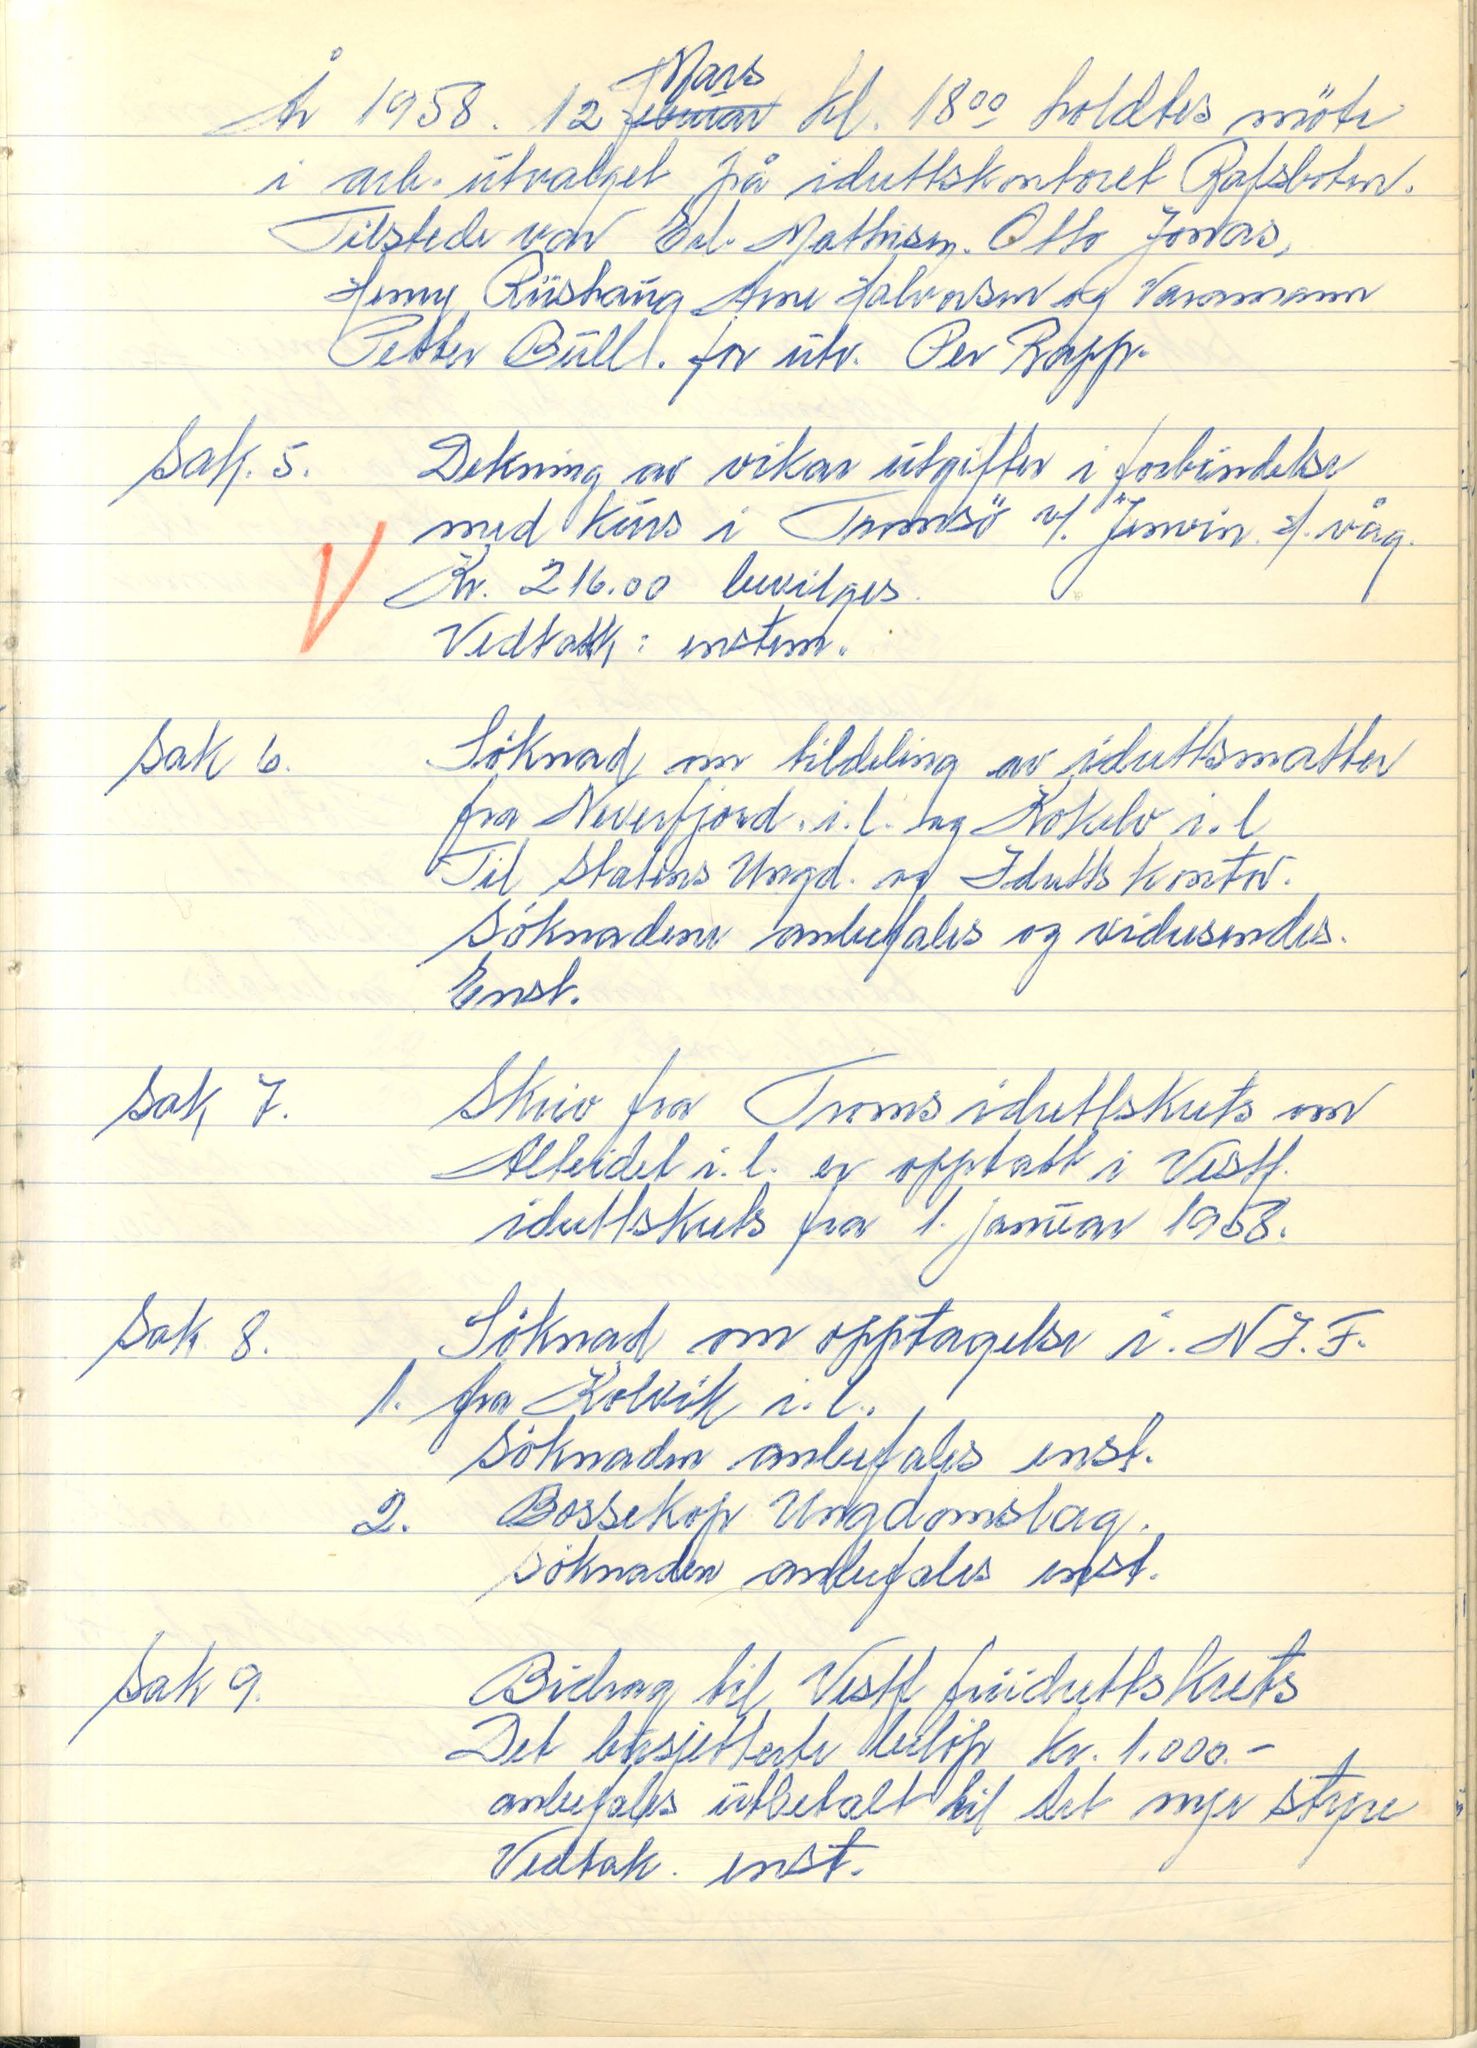 Mars
År 1958. 12 februar kl. 18⁰⁰ holdtes möte
i arb. utvalget på idrettskontoret Rafsboten.
Tilstede var Erl. Mathisen. Otto Jonas,
Henry Rüshaug Arne Halvorsen og Varamann
Petter Büll. for utv. Per Rapp.
Sak. 5. Dekning av vikar utgifter i forbindelse
med kurs i Tromsö v/. Jenvin. s/. våg.
V Kr. 216.00 bevilges.
Vedtatk: enstem.
Sak 6. Söknad om tildeling av idrettsmatter
fra Neverfjord. i.l. og Kokelv i.l
Til Statens Ungd. og Idretts kontor.
Söknadene anbefales og videresendes.
Enst.
Sak 7. Skriv fra Troms idrettskrets om
Alteidet i.l. er opptatt i Vestf.
idrettskrets fra 1. januar 1958.
Sak 8. Söknad om opptagelse i. N I. F.
1. fra Kolvik i.l.
Söknaden anbefales enst.
2. Bossekop Ungdomslag.
Söknaden anbefales enst.
Sak 9. Bidrag til Vestf friidrettskrets
Det busjetterte belöp Kr. 1.000.-
anbefales utbetalt til det nye styre
Vedtak. enst.